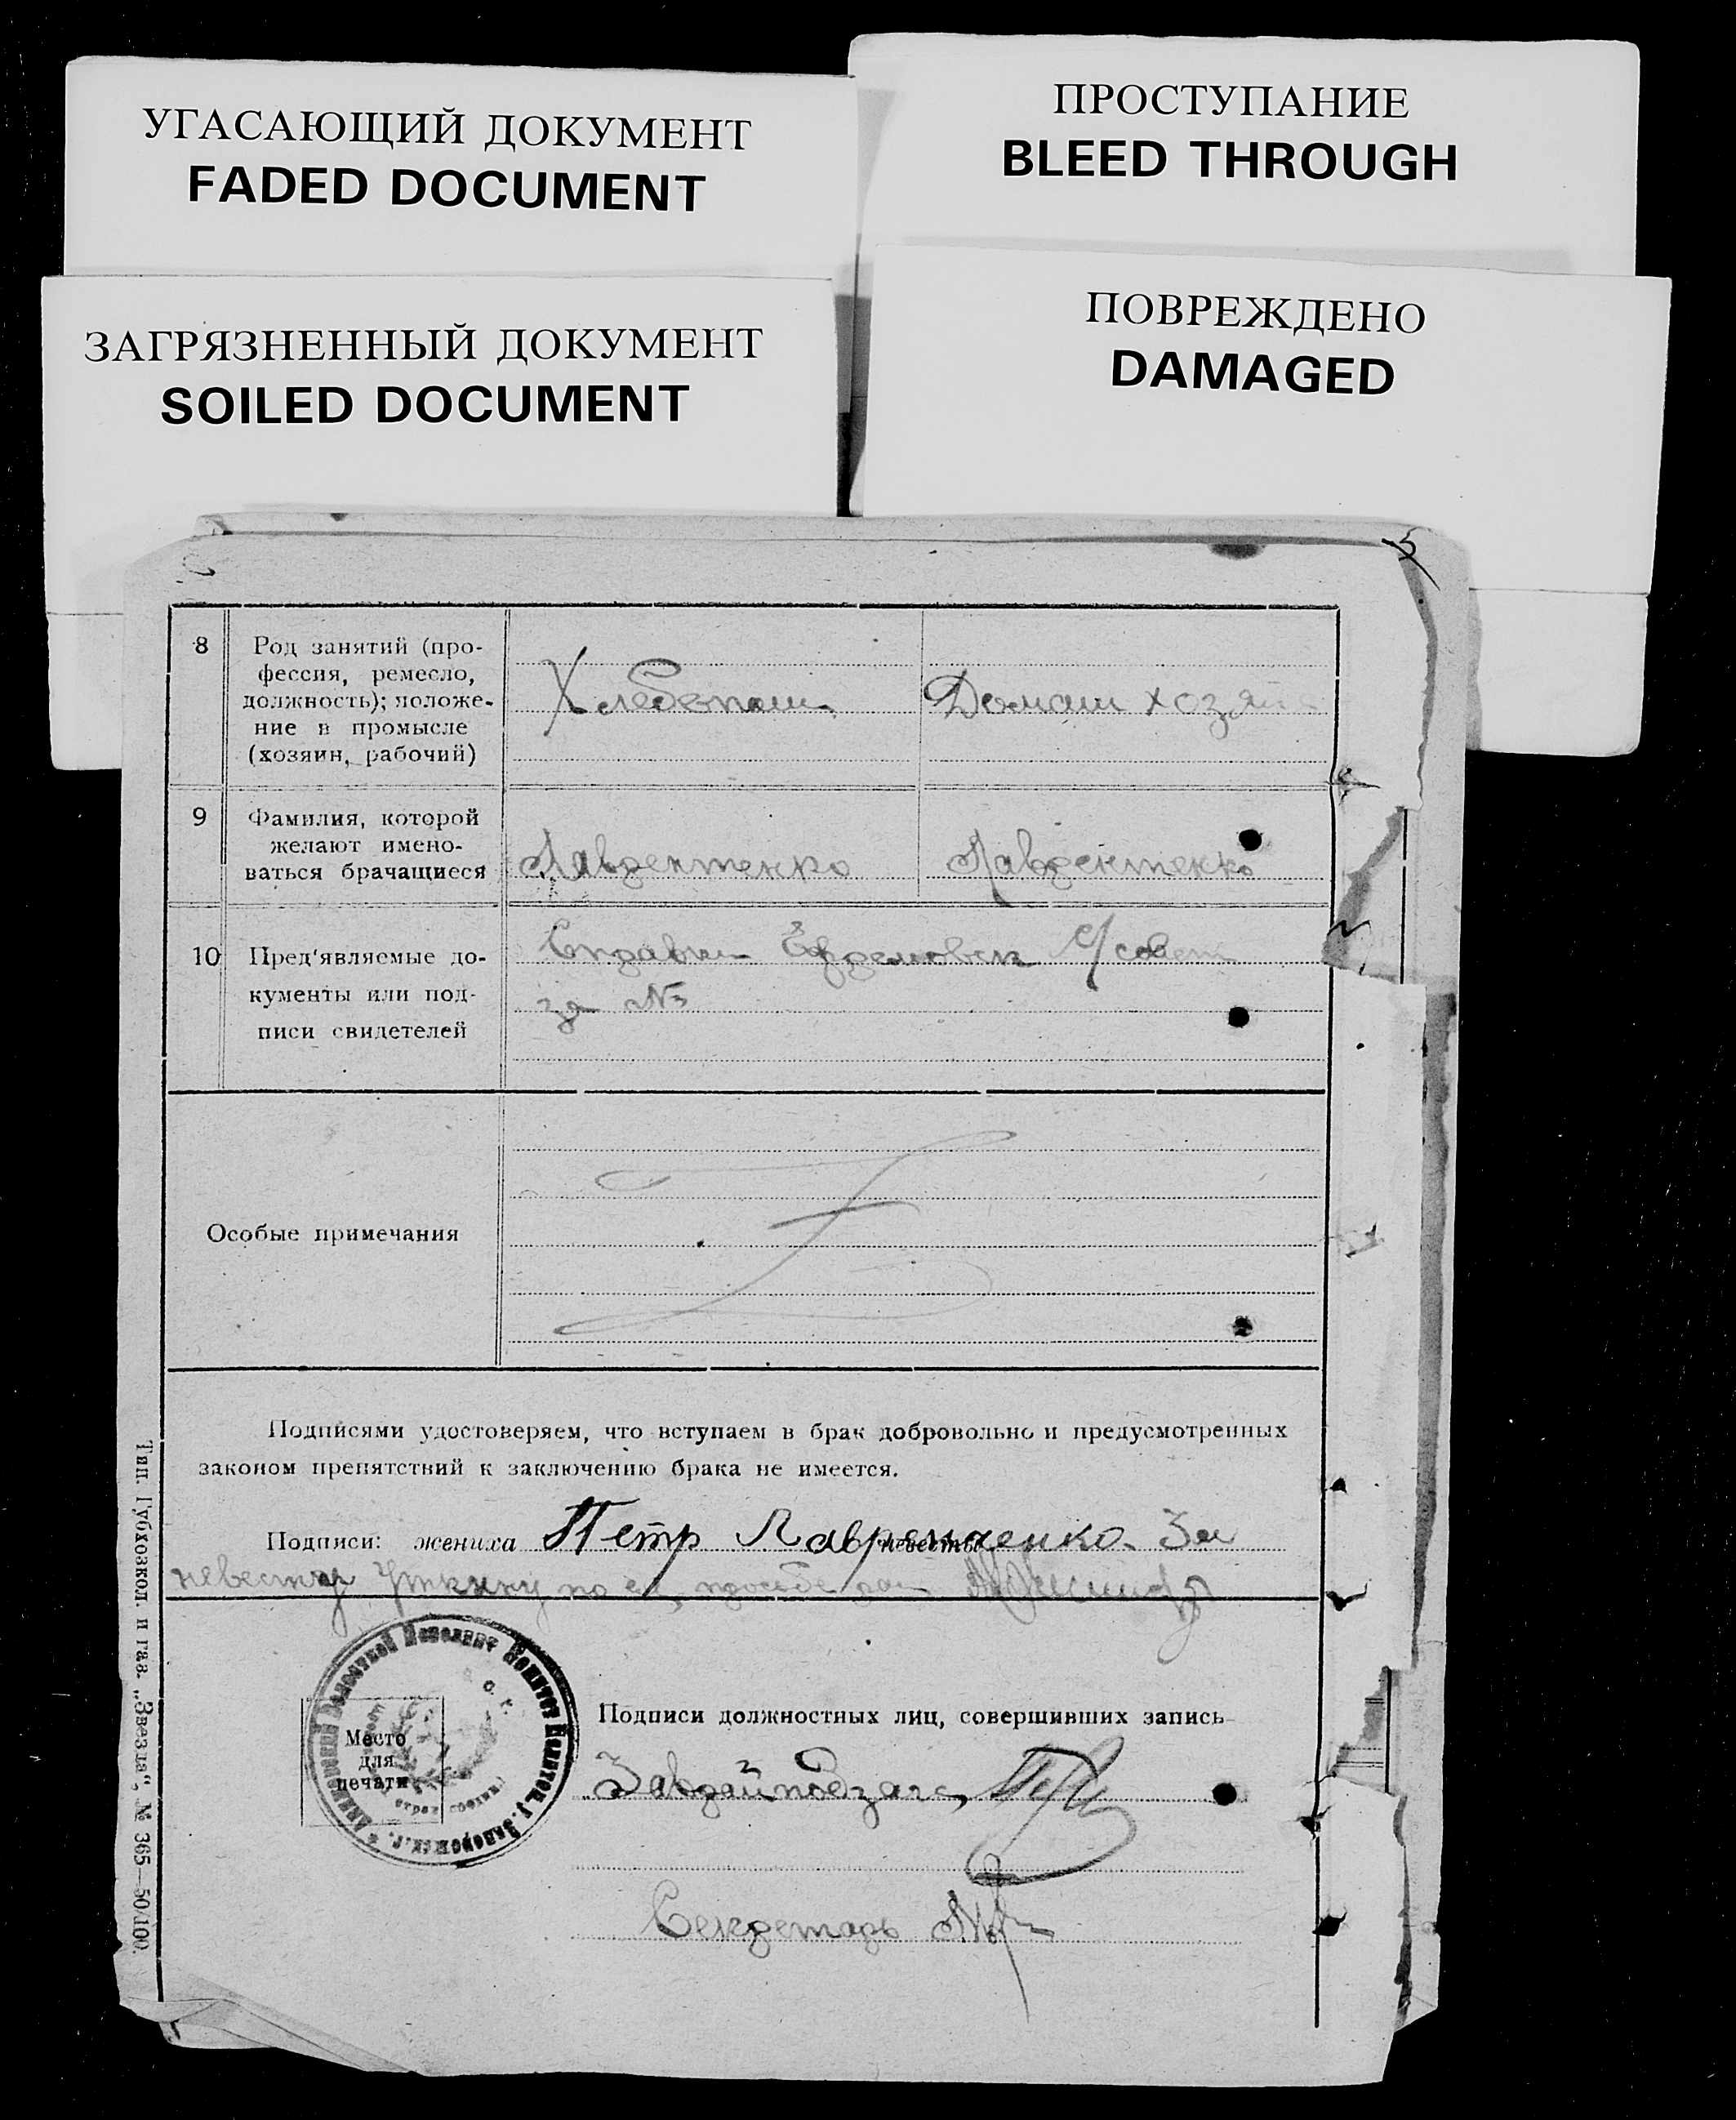 УГАСАЮЩИЙ ДОКУМЕНТ
FADED DOCUMENT
ПРОСТУПАНИЕ
BLEED THROUGH
ЗАГРЯЗНЕННЫЙ ДОКУМЕНТ
SOILED DOCUMENT
ПОВРЕЖДЕНО
DAMAGED
5
8
Род занятий (про-
фессия, ремесло,
должность); положе-
ние в промысле
(хозяин, рабочий)
Хлебопаш.
Домаш хозяй
9
Фамилия, которой
желают имено-
ваться брачащиеся
Лаврентенко
Лаврентенко
10
Пред'являемые до-
кументы или под-
писи свидетелей
Справки Ефремовск С/совет
за №
Особые примечания
Подписями удостоверяем, что вступаем в брак добровольно и предусмотренных
законом препятствий к заключению брака не имеется.
Подписи: жениха Петр невесты За
невесту по ея просьбе рас
Место
для
печати
Подписи должностных лиц, совершивших запись
Секретарь
Тип. Губхозкол. и газ. „Звезда“, № 365—50/100.